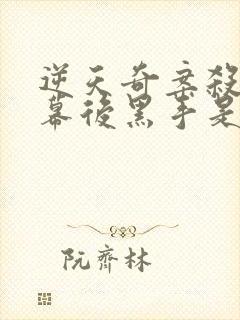 逆天奇案殺
幕後黑手是
阮齊林